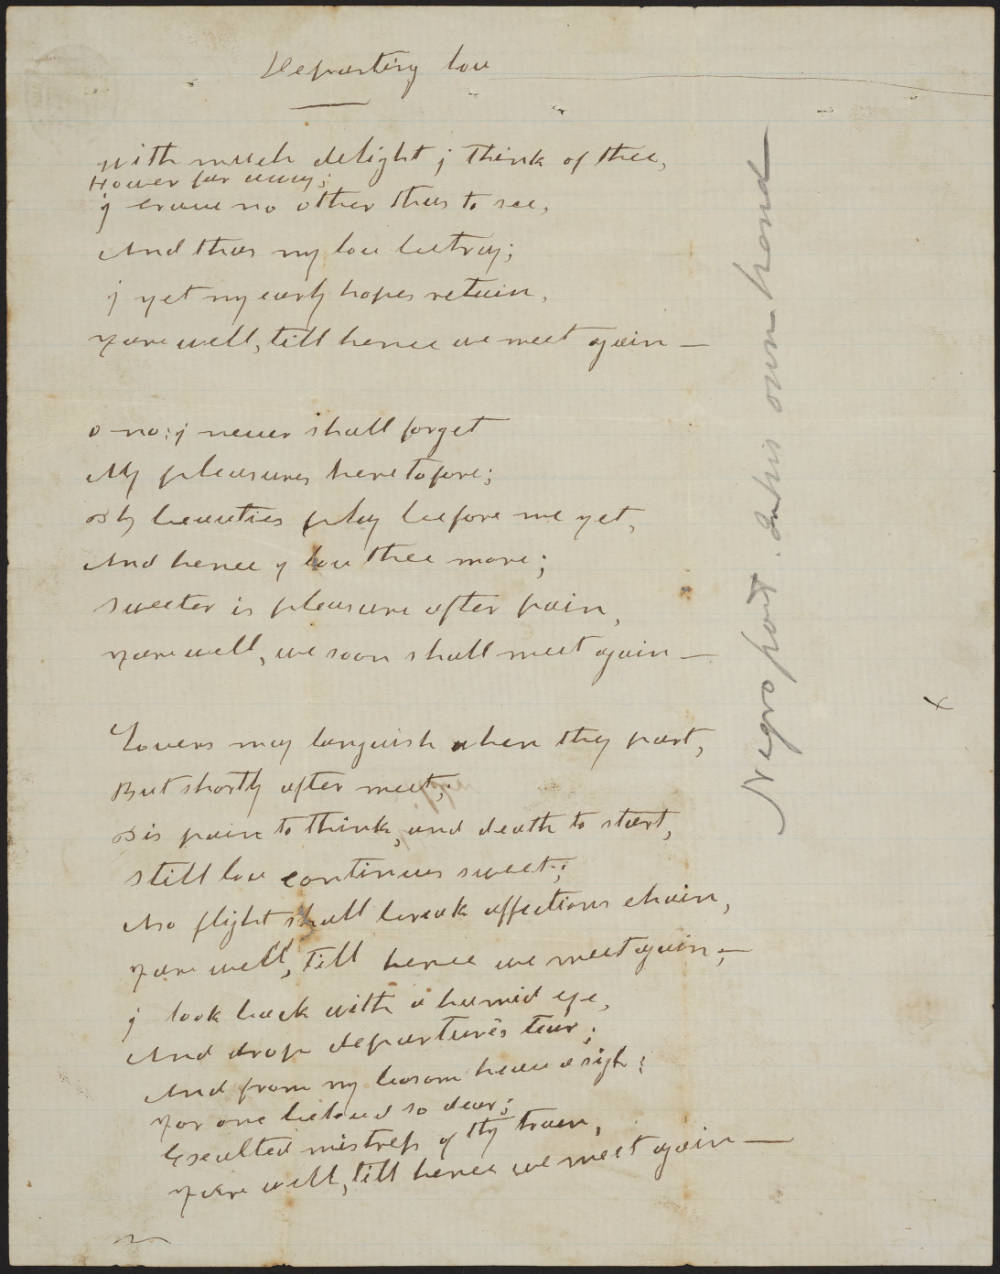 Departing love
with much delight j think of thee,
However far away;
j crave no other thus to see,
And thus my love betray;
j yet my early hopes retain,
Farewell, till hence we meet again —
o no; j never shall forget
My pleasures heretofore;
Thy beauties play before me yet,
And hence j love thee more;
sweeter is pleasure after pain,
Farewell, we soon shall meet again —
Lovers may languish when they part,
But shortly after meet;
Tis pain to think, and death to start,
still love continues sweet;
No flight shall break affections chain,
Farewell, till hence we meet again, —
j look back with a humid eye,
And drop departure's tear;
And from my bosom heave a sigh;
For one beloved so dear;
Exculted mistress of thy train,
Farewell, till hence we meet again —
Negro poet. In his own hand
x